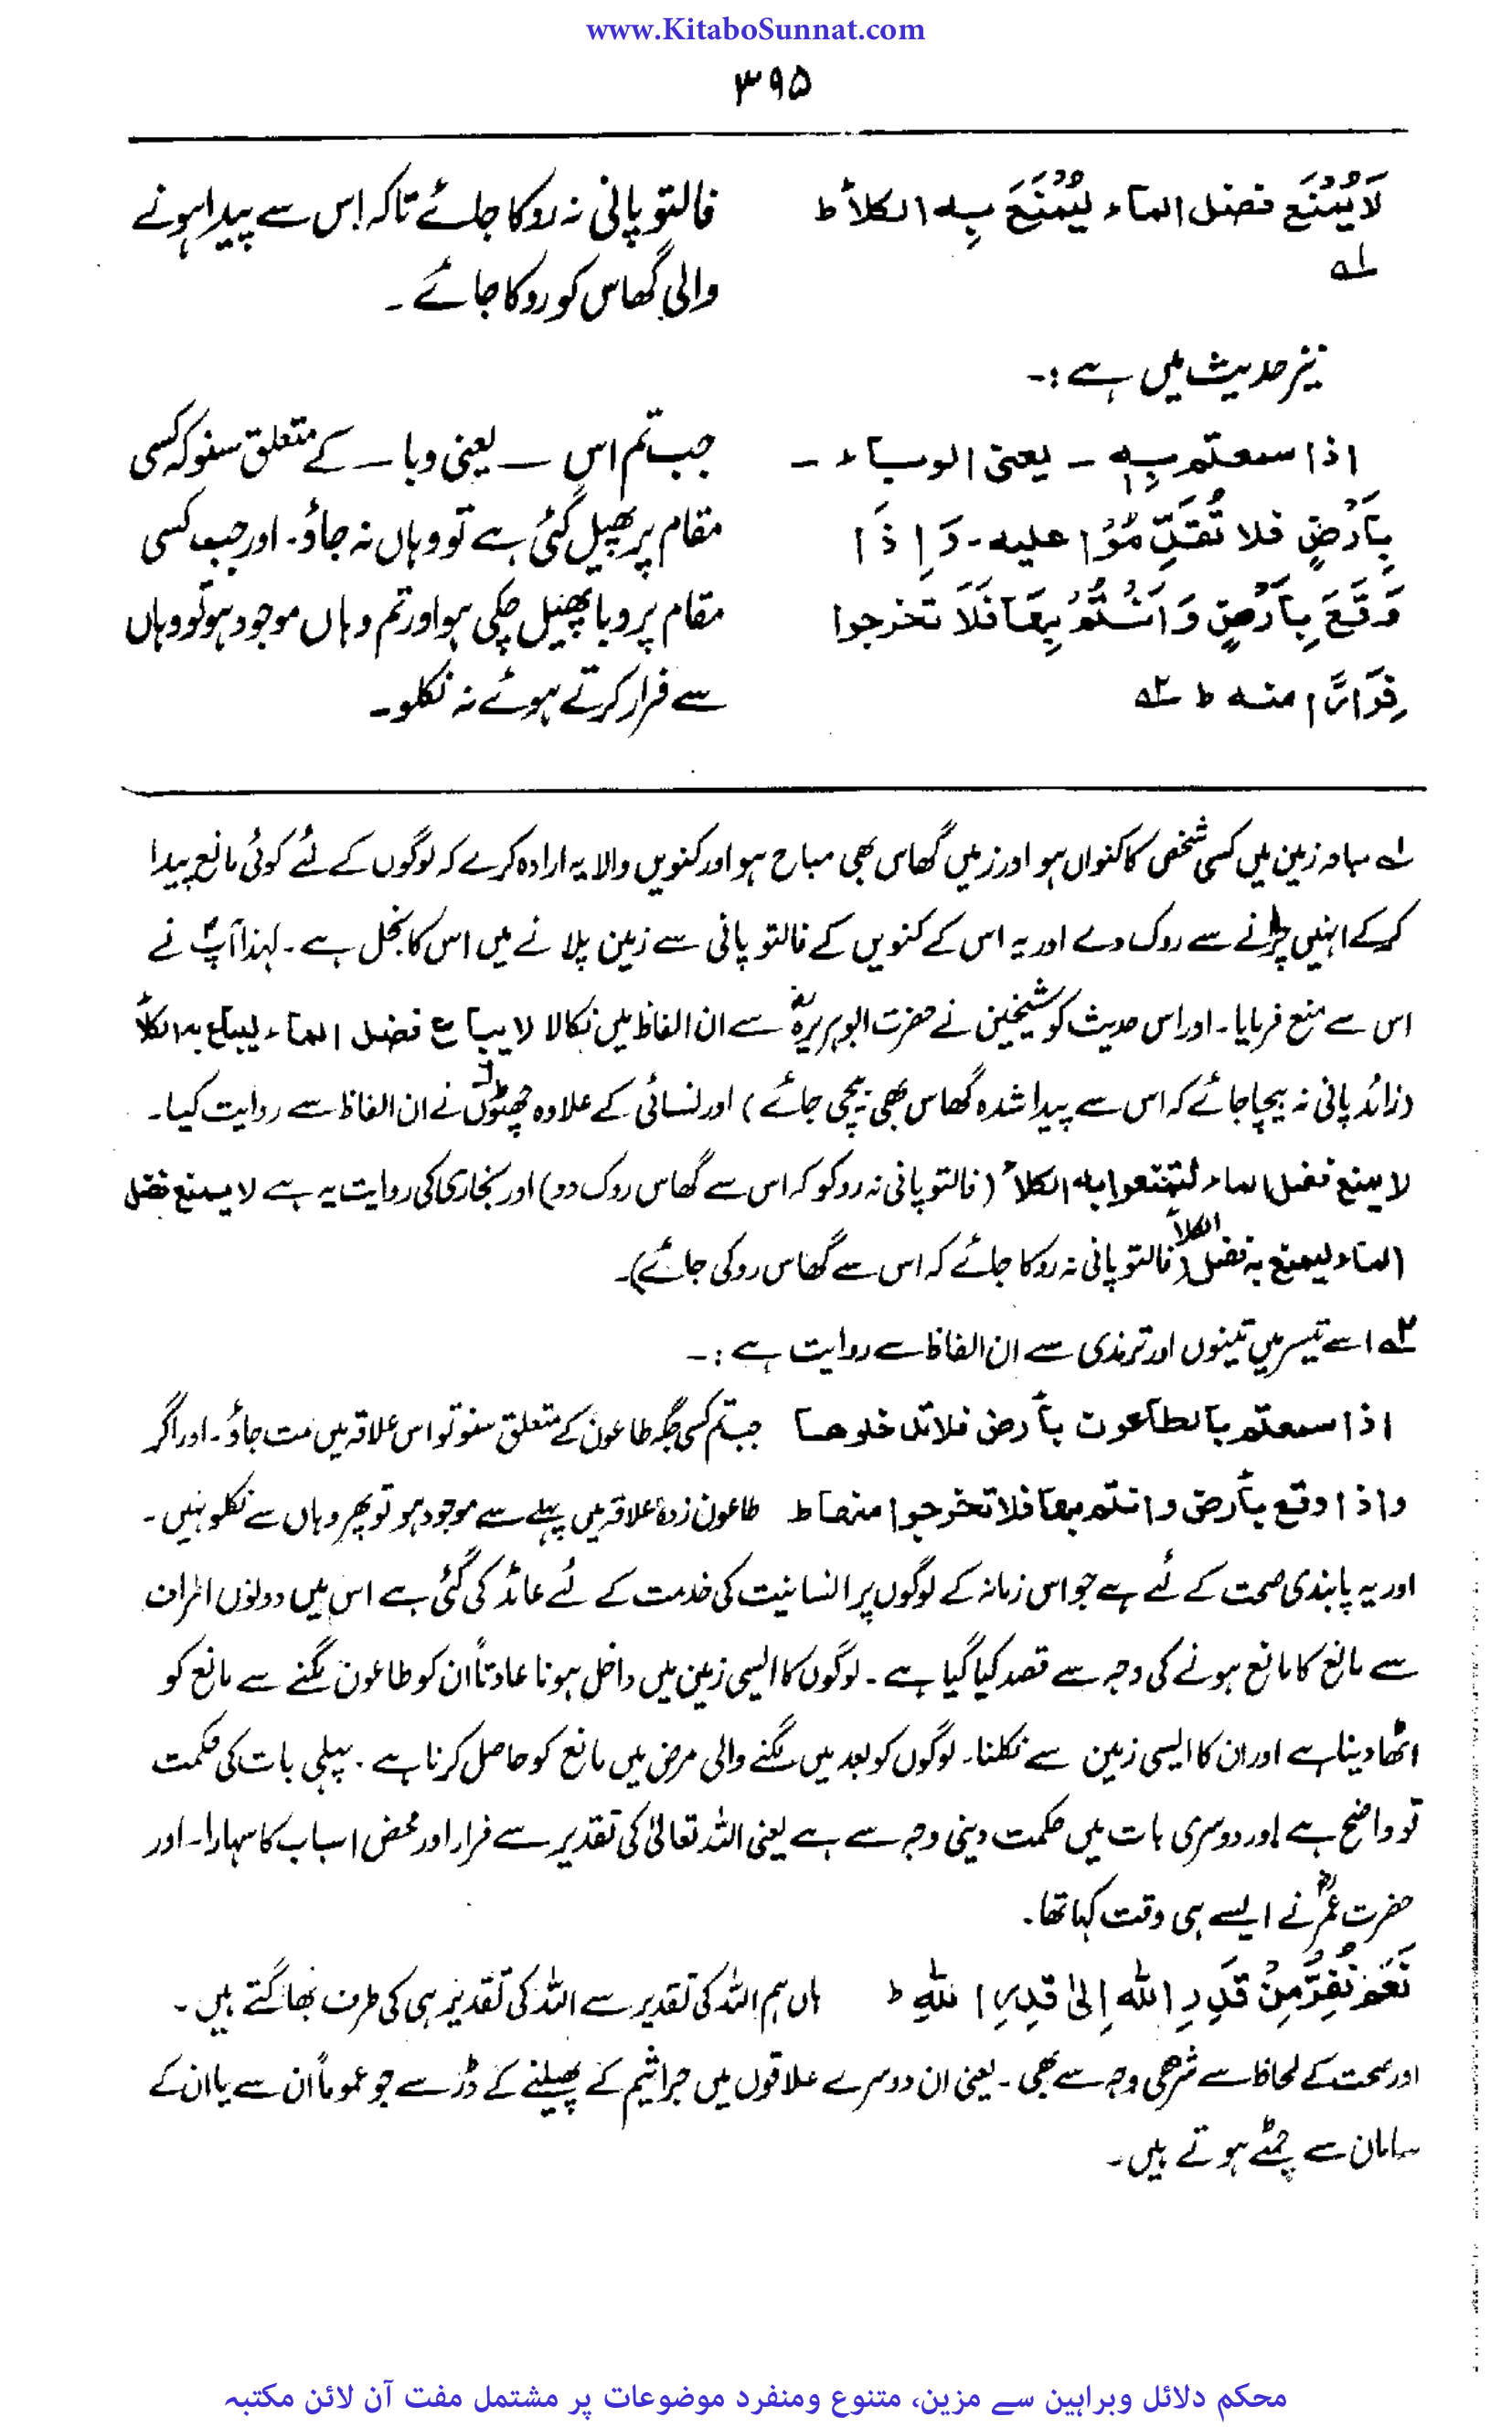 www.KitaboSunnat.com
۳۹۵
لَا يُمْنَع فضل الماء لِيُمْنَعَ بِه الكلأ ط فالتو پانی نہ روکا جائے تاکہ اس سے پیدا ہونے
لہ والی گھاس کو روکا جائے ۔
نیز حدیث میں ہے :۔
اذا سمعتم بِه ۔ یعنی الوباء ۔ جب تم اس ـــ یعنی وبا ـــ کے متعلق سنو کہ کسی
بِأَرْضٍ فلا تُقَدِّمُوْا عليه ۔ وَإِذَا مقام پر پھیل گئی ہے تو وہاں نہ جاؤ۔ اور جب کسی
وَقَعَ بِأَرْضٍ وَأَنْتُمْ بِهَا فَلَا تخرجوا مقام پر وبا پھیل چکی ہو اور تم وہاں موجود ہو تو وہاں
فِرَارًا منه ط ۲ہ سے فرار کرتے ہوئے نہ نکلو۔
لہ مباحہ زمین میں کسی شخص کا کنواں ہو اور زمیں گھاس بھی مباح ہو اور کنویں والا یہ ارادہ کرے کہ لوگوں کے لئے کوئی مانع پیدا
کر کے انہیں چرانے سے روک دے اور یہ اس کے کنویں کے فالتو پانی سے زمین پلانے میں اس کا بخل ہے ۔ لہذا آپؐ نے
اس سے منع فرمایا۔ اور اس حدیث کو شیخین نے حضرت ابوہریرہؓ سے ان الفاظ میں نکالا لا یباع فضل الماء لیباع بہ الکلأ
(زائد پانی نہ بیچا جائے کہ اس سے پیدا شدہ گھاس بھی بیچی جائے) اور نسائی کے علاوہ چھٹوں نے ان الفاظ سے روایت کیا۔
لا یمنع فضل الماء لتمنعوا بہ الکلأ (فالتو پانی نہ روکو کہ اس سے گھاس روک دو) اور بخاری کی روایت یہ ہے لا یمنع فضل
الماء لیمنع بہ فضل الکلأ (فالتو پانی نہ روکا جائے کہ اس سے گھاس روکی جائے)۔
۲ہ اسے تیسر میں تینوں اور ترمذی سے ان الفاظ سے روایت ہے :۔
اذا سمعتم بالطاعون بأرض فلا تدخلوها جب تم کسی جگہ طاعون کے متعلق سنو تو اس علاقہ میں مت جاؤ۔ اور اگر
واذا وقع بأرض وانتم بها فلا تخرجوا منها ط طاعون زدہ علاقہ میں پہلے سے موجود ہو تو پھر وہاں سے نکلو نہیں ۔
اور یہ پابندی صحت کے لئے ہے جو اس زمانہ کے لوگوں پر انسانیت کی خدمت کے لئے عائد کی گئی ہے اس میں دونوں اطراف
سے مانع کا مانع ہونے کی وجہ سے قصد کیا گیا ہے ۔ لوگوں کا ایسی زمین میں داخل ہونا عادتاً ان کو طاعون لگنے سے مانع کو
اٹھا دینا ہے اور ان کا ایسی زمین سے نکلنا۔ لوگوں کو بعد میں لگنے والی مرض میں مانع کو حاصل کرنا ہے ۔ پہلی بات کی حکمت
تو واضح ہے اور دوسری بات میں حکمت دینی وجہ سے ہے یعنی اللہ تعالیٰ کی تقدیر سے فرار اور محض اسباب کا سہارا۔ اور
حضرت عمرؓ نے ایسے ہی وقت کہا تھا۔
نَعَمْ نَفِرُّ مِنْ قَدَرِ اللهِ إِلىٰ قدرِ اللهِ ط ہاں ہم اللہ کی تقدیر سے اللہ کی تقدیر ہی کی طرف بھاگتے ہیں ۔
اور صحت کے لحاظ سے شرعی وجہ سے بھی ۔ یعنی ان دوسرے علاقوں میں جراثیم کے پھیلنے کے ڈر سے جو عموماً ان سے یا ان کے
سامان سے چمٹے ہوتے ہیں۔
محکم دلائل وبراہین سے مزین، متنوع ومنفرد موضوعات پر مشتمل مفت آن لائن مکتبہ